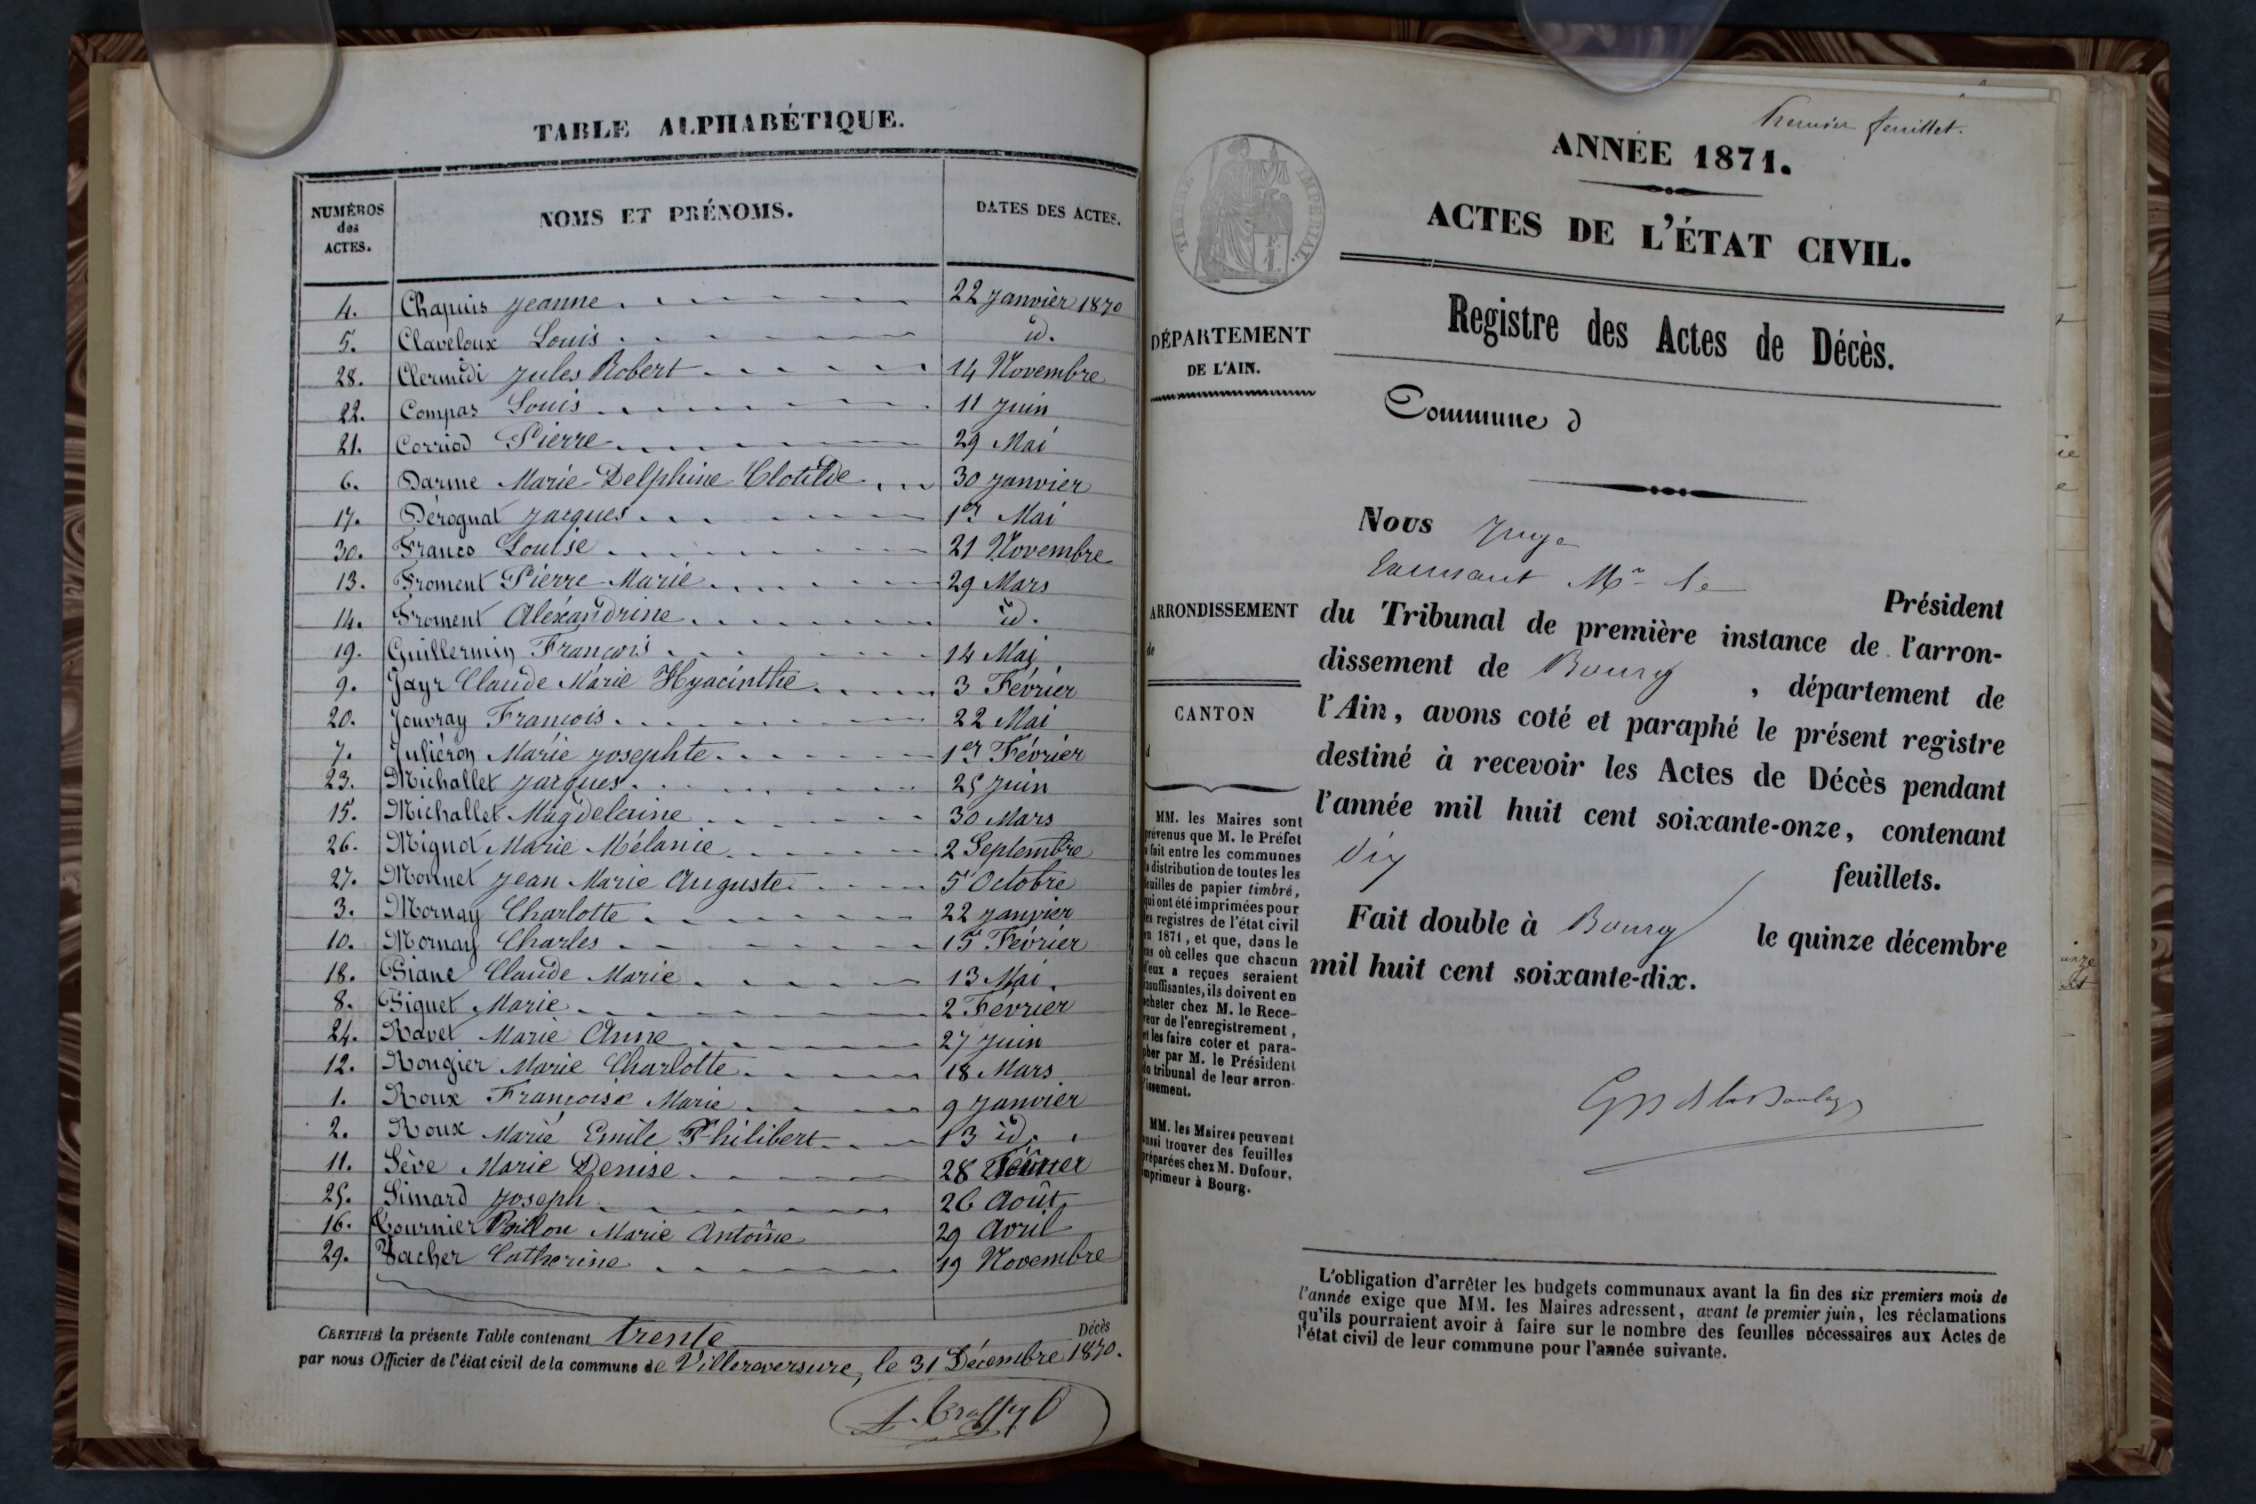 TABLE ALPHABÉTIQUE.
NUMÉROS des ACTES.
NOMS ET PRÉNOMS.
DATES DES ACTES.
4. Chapuis Jeanne 22 Janvier 1870
5. Claveloux Louis id.
28. Clermidi Jules Robert 14 Novembre
22. Compas Louis 11 Juin
21. Corriod Pierre 29 Mai
6. Darme Marie Delphine Clotilde 30 Janvier
17. Dérognat Jacques 1er Mai
30. Franco Louise 21 Novembre
13. Froment Pierre Marie 29 Mars
14. Froment Aléxandrine id.
19. Guillermin François 14 Mai
9. Jayr Claude Marie Hyacinthe 3 Février
20. Jouvray François 22 Mai
7. Juliéron Marie Josephte 1er Février
23. Michallet Jacques 25 Juin
15. Michallet Magdelaine 30 Mars
26. Mignot Marie Mélanie 2 Septembre
27. Monnet Jean Marie Auguste 5 Octobre
3. Mornay Charlotte 22 Janvier
10. Mornay Charles 15 Février
18. Piane Claude Marie 13 Mai.
8. Piquet Marie 2 Février
24. Ravet Marie Anne 27 Juin
12. Rongier Marie Charlotte 18 Mars
1. Roux Françoise Marie 9 Janvier
2. Roux Marie Emile Philibert 13 id.
11. Sève Marie Denise 28 Février
25. Simard Joseph 26 Août
16. Tournier Billon Marie Antoine 29 Avril
29. Vacher Catherine 19 Novembre
CERTIFIÉ la présente Table contenant trente Décès
par nous Officier de l'état civil de la commune de Villereversure, le 31 Décembre 1870.
Premier feuillet.
ANNÉE 1871.
ACTES DE L'ÉTAT CIVIL.
TIMBRE IMPÉRIAL.
Registre des Actes de Décès.
DÉPARTEMENT
DE L'AIN.
Commune d
Nous Juge
Président
ARRONDISSEMENT
de
CANTON
d
du Tribunal de première instance de l'arron-
dissement de Bourg, département de
l'Ain, avons coté et paraphé le présent registre
destiné à recevoir les Actes de Décès pendant
l'année mil huit cent soixante-onze, contenant
dix feuillets.
Fait double à Bourg le quinze décembre
mil huit cent soixante-dix.
MM. les Maires sont
prévenus que M. le Préfet
a fait entre les communes
la distribution de toutes les
feuilles de papier timbré,
qui ont été imprimées pour
les registres de l'état civil
en 1871, et que, dans le
cas où celles que chacun
d'eux a reçues seraient
insuffisantes, ils doivent en
acheter chez M. le Rece-
veur de l'enregistrement,
et les faire coter et para-
pher par M. le Président
du tribunal de leur arron-
dissement.
MM. les Maires peuvent
aussi trouver des feuilles
préparées chez M. Dufour,
imprimeur à Bourg.
L'obligation d'arrêter les budgets communaux avant la fin des six premiers mois de
l'année exige que MM. les Maires adressent, avant le premier juin, les réclamations
qu'ils pourraient avoir à faire sur le nombre des feuilles nécessaires aux Actes de
l'état civil de leur commune pour l'année suivante.